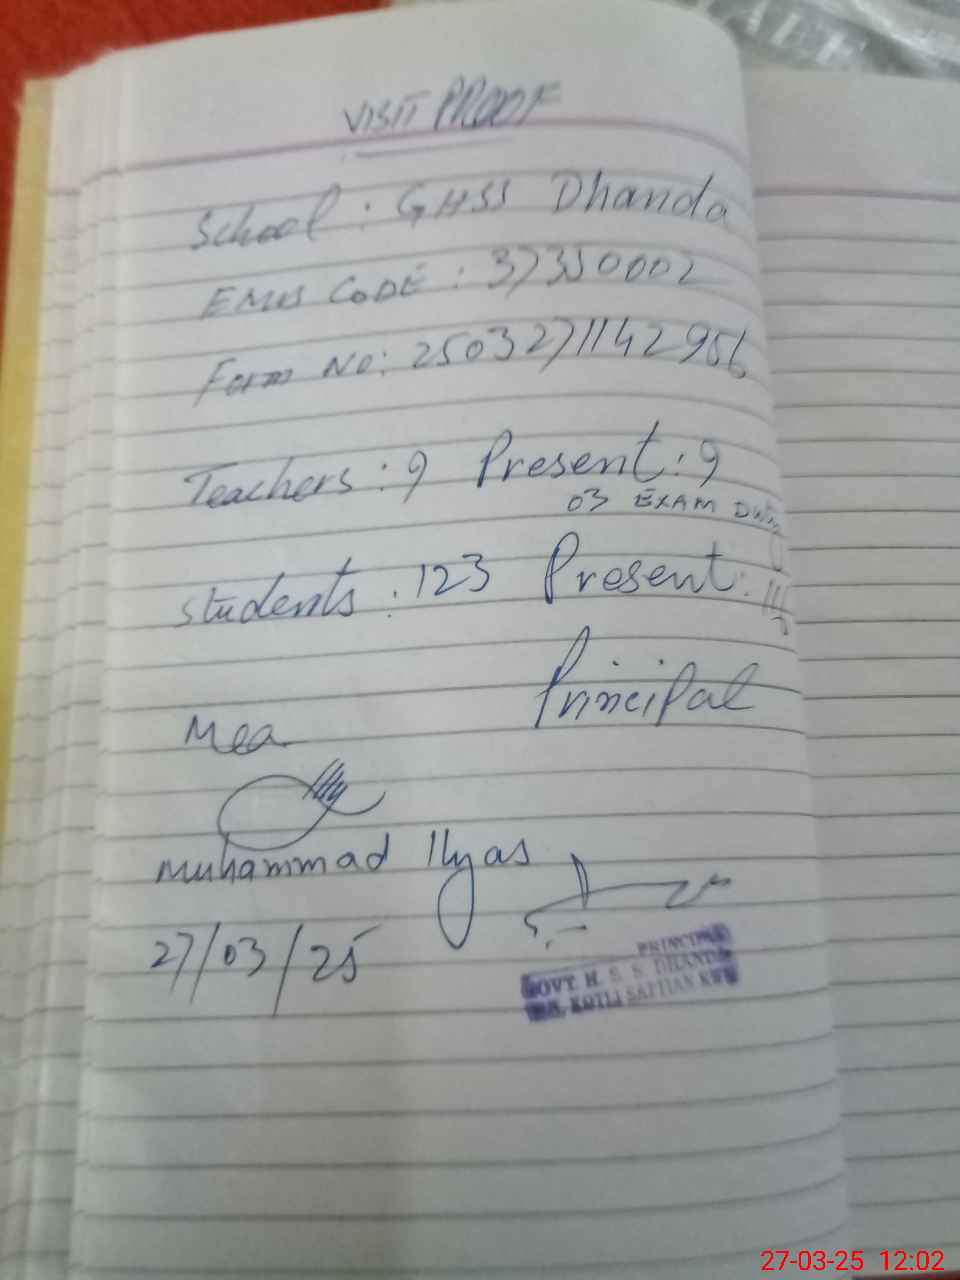 VISIT PROOF
School : GHSS Dhanda
EMIS CODE : 37350002
Form No: 2503271142956
Teachers : 9 Present : 9
03 EXAM Duty
Students : 123 Present :
Principal
Mea
Muhammad Ilyas
27/03/25
PRINCIPAL
GOVT. H. S. S. DHANDA
KOTLI SATTIAN
27-03-25 12:02